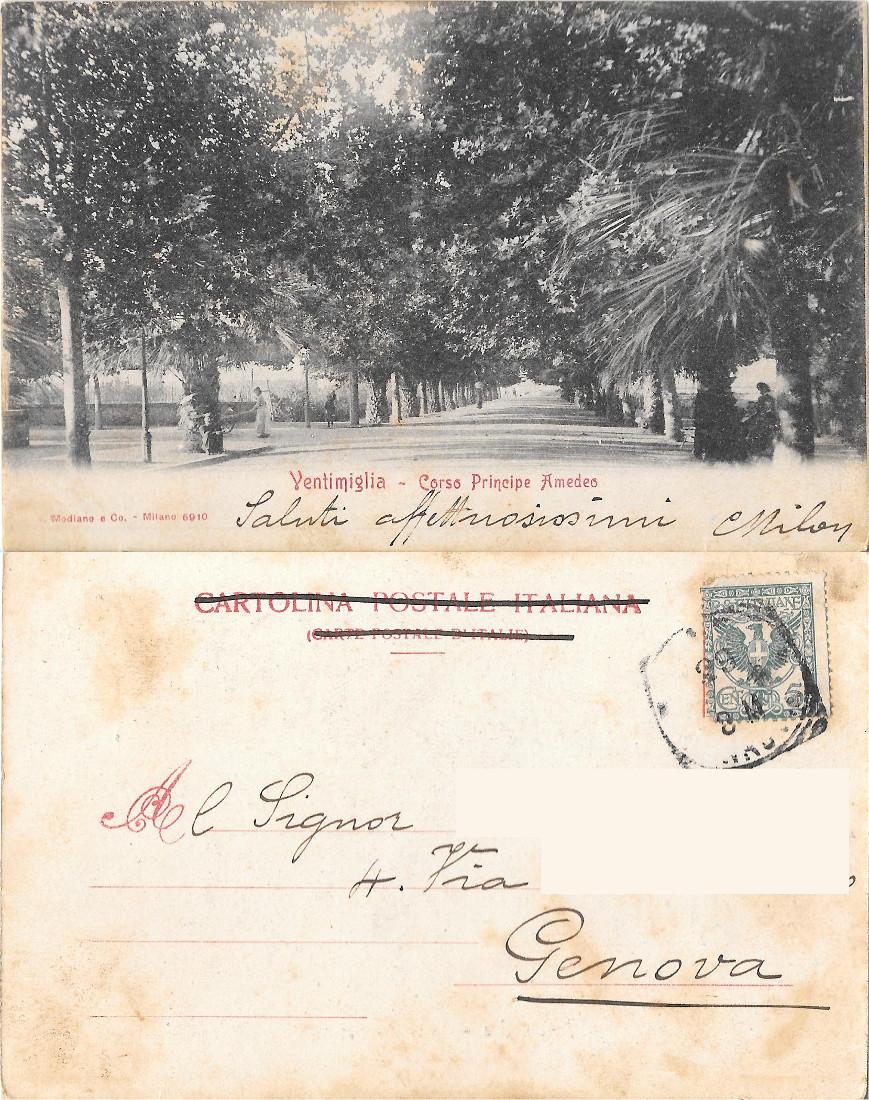 Ventimiglia - Corso Principe Amedeo
Modiano e Co. - Milano 6910
Saluti affettuosissimi
CARTOLINA POSTALE ITALIANA
(CARTE POSTALE D'ITALIE)
Al Signor
4. Via
Genova